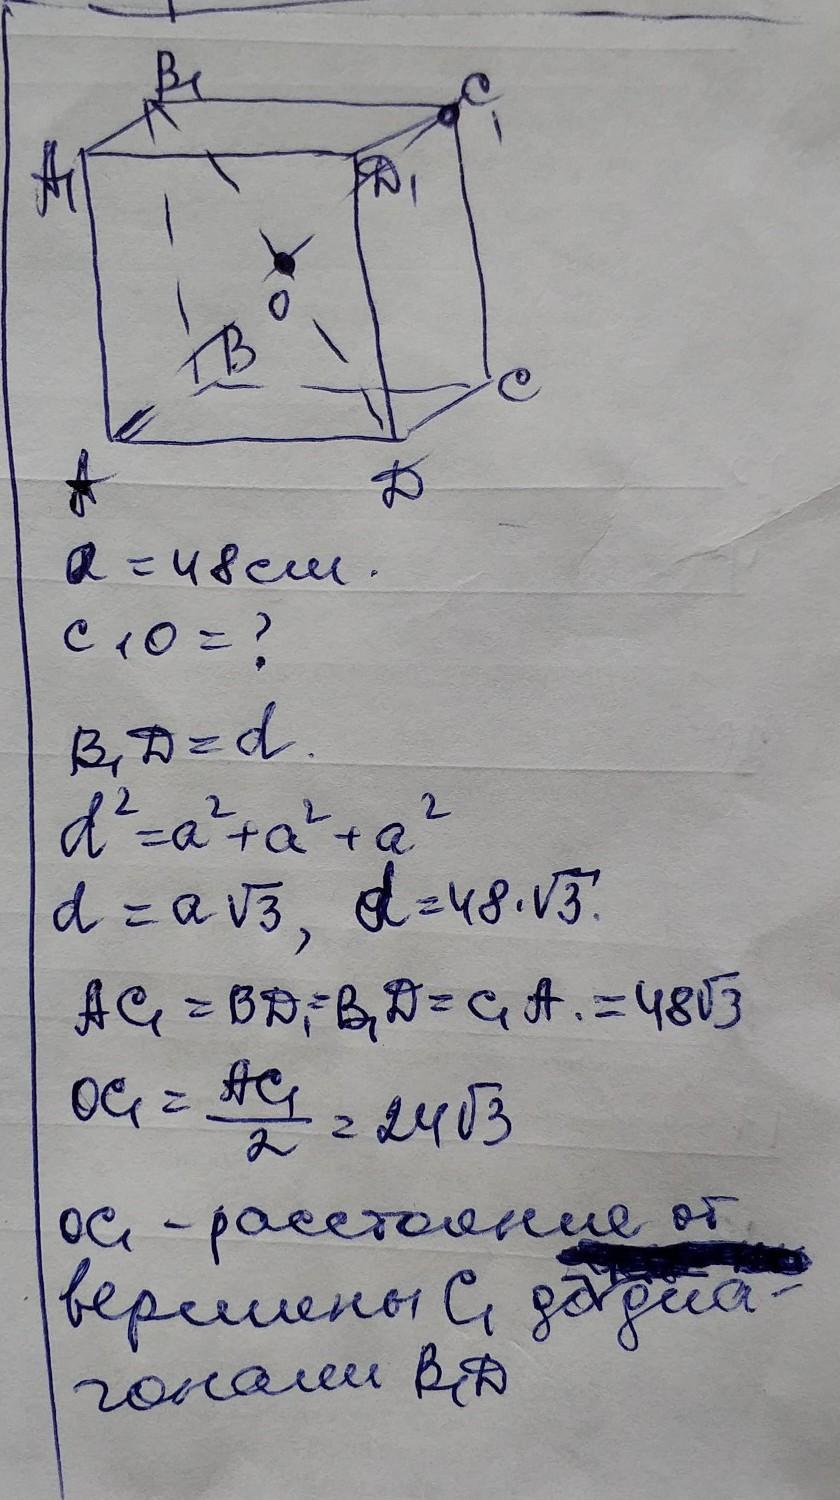 B₁
C₁
A₁
D₁
O
B
C
A
D
a = 48см.
C₁O = ?
B₁D = d.
d² = a² + a² + a²
d = a√3, d = 48·√3.
AC₁ = BD₁ = B₁D = C₁A. = 48√3
OC₁ = AC₁/2 = 24√3
OC₁ - расстояние от
вершины C₁ до диа-
гонали B₁D